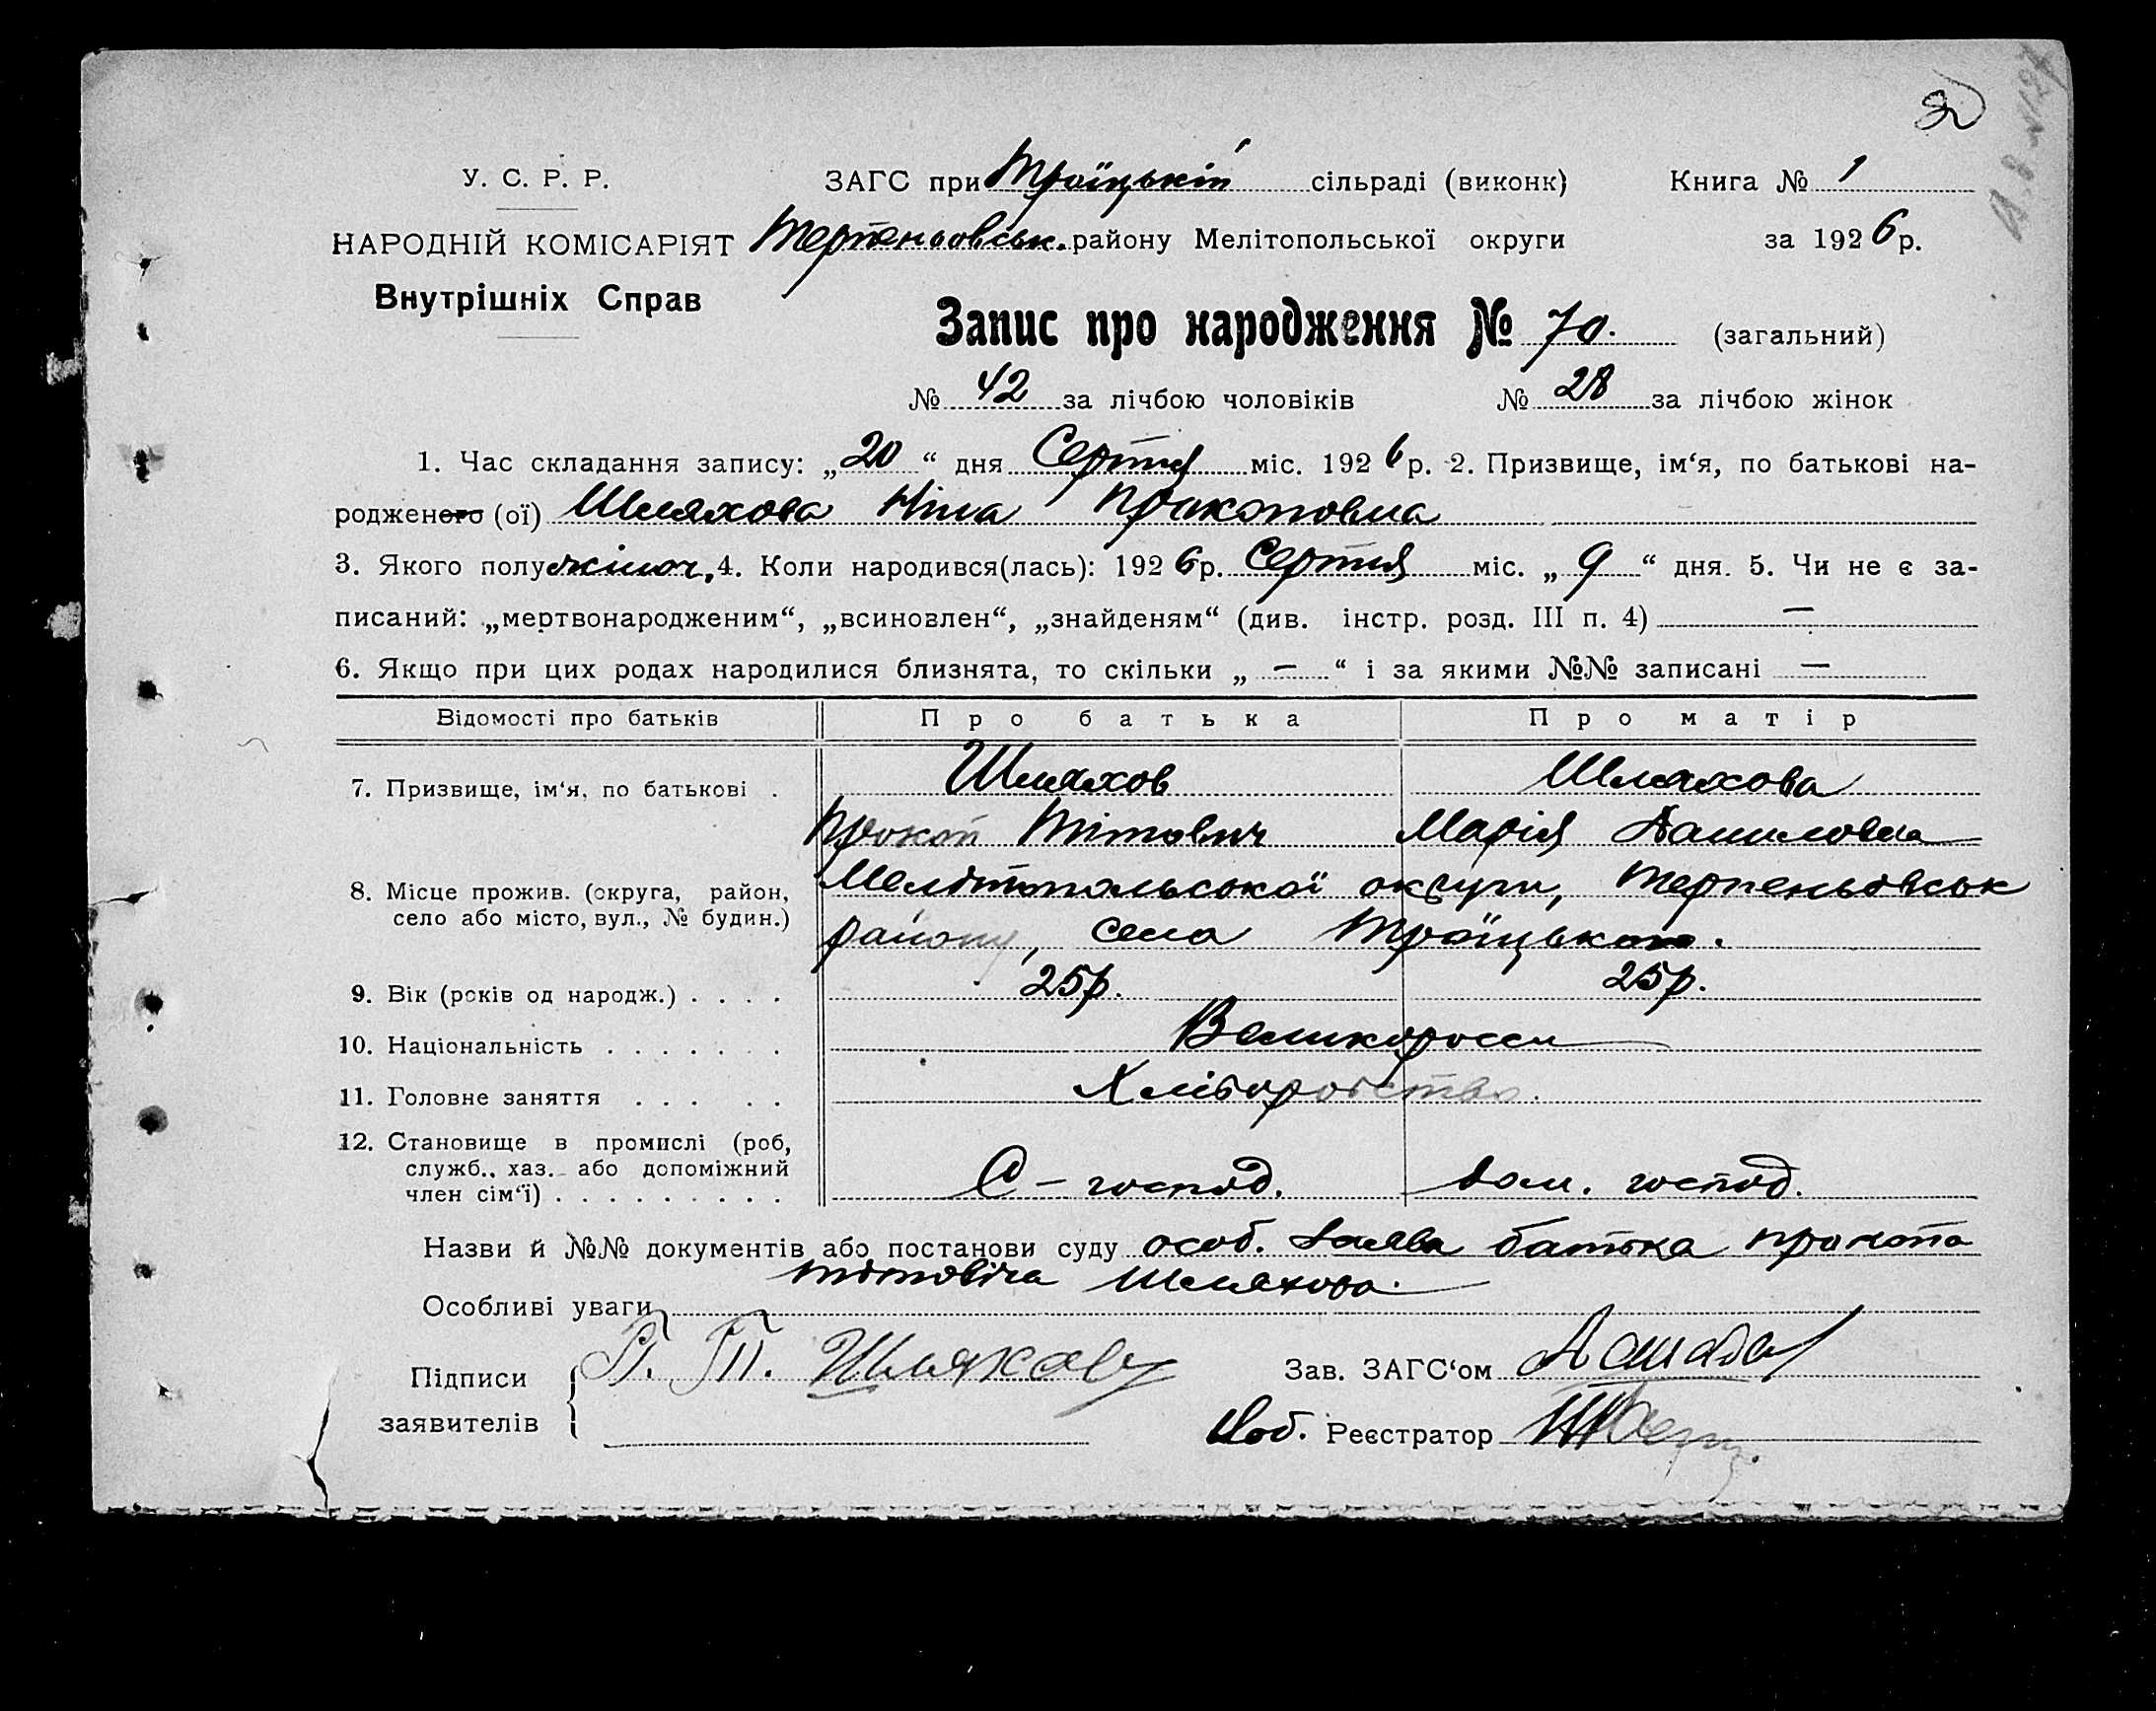 У. С. Р. Р. ЗАГС при Троїцькій сільраді (виконк) Книга № 1
НАРОДНІЙ КОМІСАРІЯТ Терпеньовськ. району Мелітопольської округи за 1926 р.
Внутрішніх Справ
Запис про народження № 70. (загальний)
№ 42 за лічбою чоловіків № 28 за лічбою жінок
1. Час складання запису: „20“ дня Серпня міс. 1926 р. 2. Призвище, ім‘я, по батькові на-
родженого (ої) Шляхова Ніна Прокоповна
3. Якого полу жіноч. 4. Коли народився(лась): 1926 р. Серпня міс. „9“ дня. 5. Чи не є за-
писаний: „мертвонародженим“, „всиновлен“, „знайденям“ (див. інстр. розд. III п. 4) —
6. Якщо при цих родах народилися близнята, то скільки „ — “ і за якими №№ записані —
Відомості про батьків Про батька Про матір
7. Призвище, ім‘я, по батькові . Шляхов Шляхова
Прокоп Тітович Марія Даниловна
8. Місце прожив. (округа, район, Мелітопольської округи, Терпеньовськ
село або місто, вул., № будин.) району, села Троїцького.
9. Вік (років од народж.) . . . . 25р. 25р.
10. Національність . . . . . . . Великоросси
11. Головне заняття . . . . . Хліборобство.
12. Становище в промислі (роб,
служб., хаз. або допоміжний С – господ. дом. господ.
член сім‘ї) . . . . . . . . .
Назви й №№ документів або постанови суду особ. заява батька Прокопа
Тітовіча Шляхова.
Особливі уваги
Підписи П. Т. Шляхов Зав. ЗАГС‘ом
заявителів Реєстратор